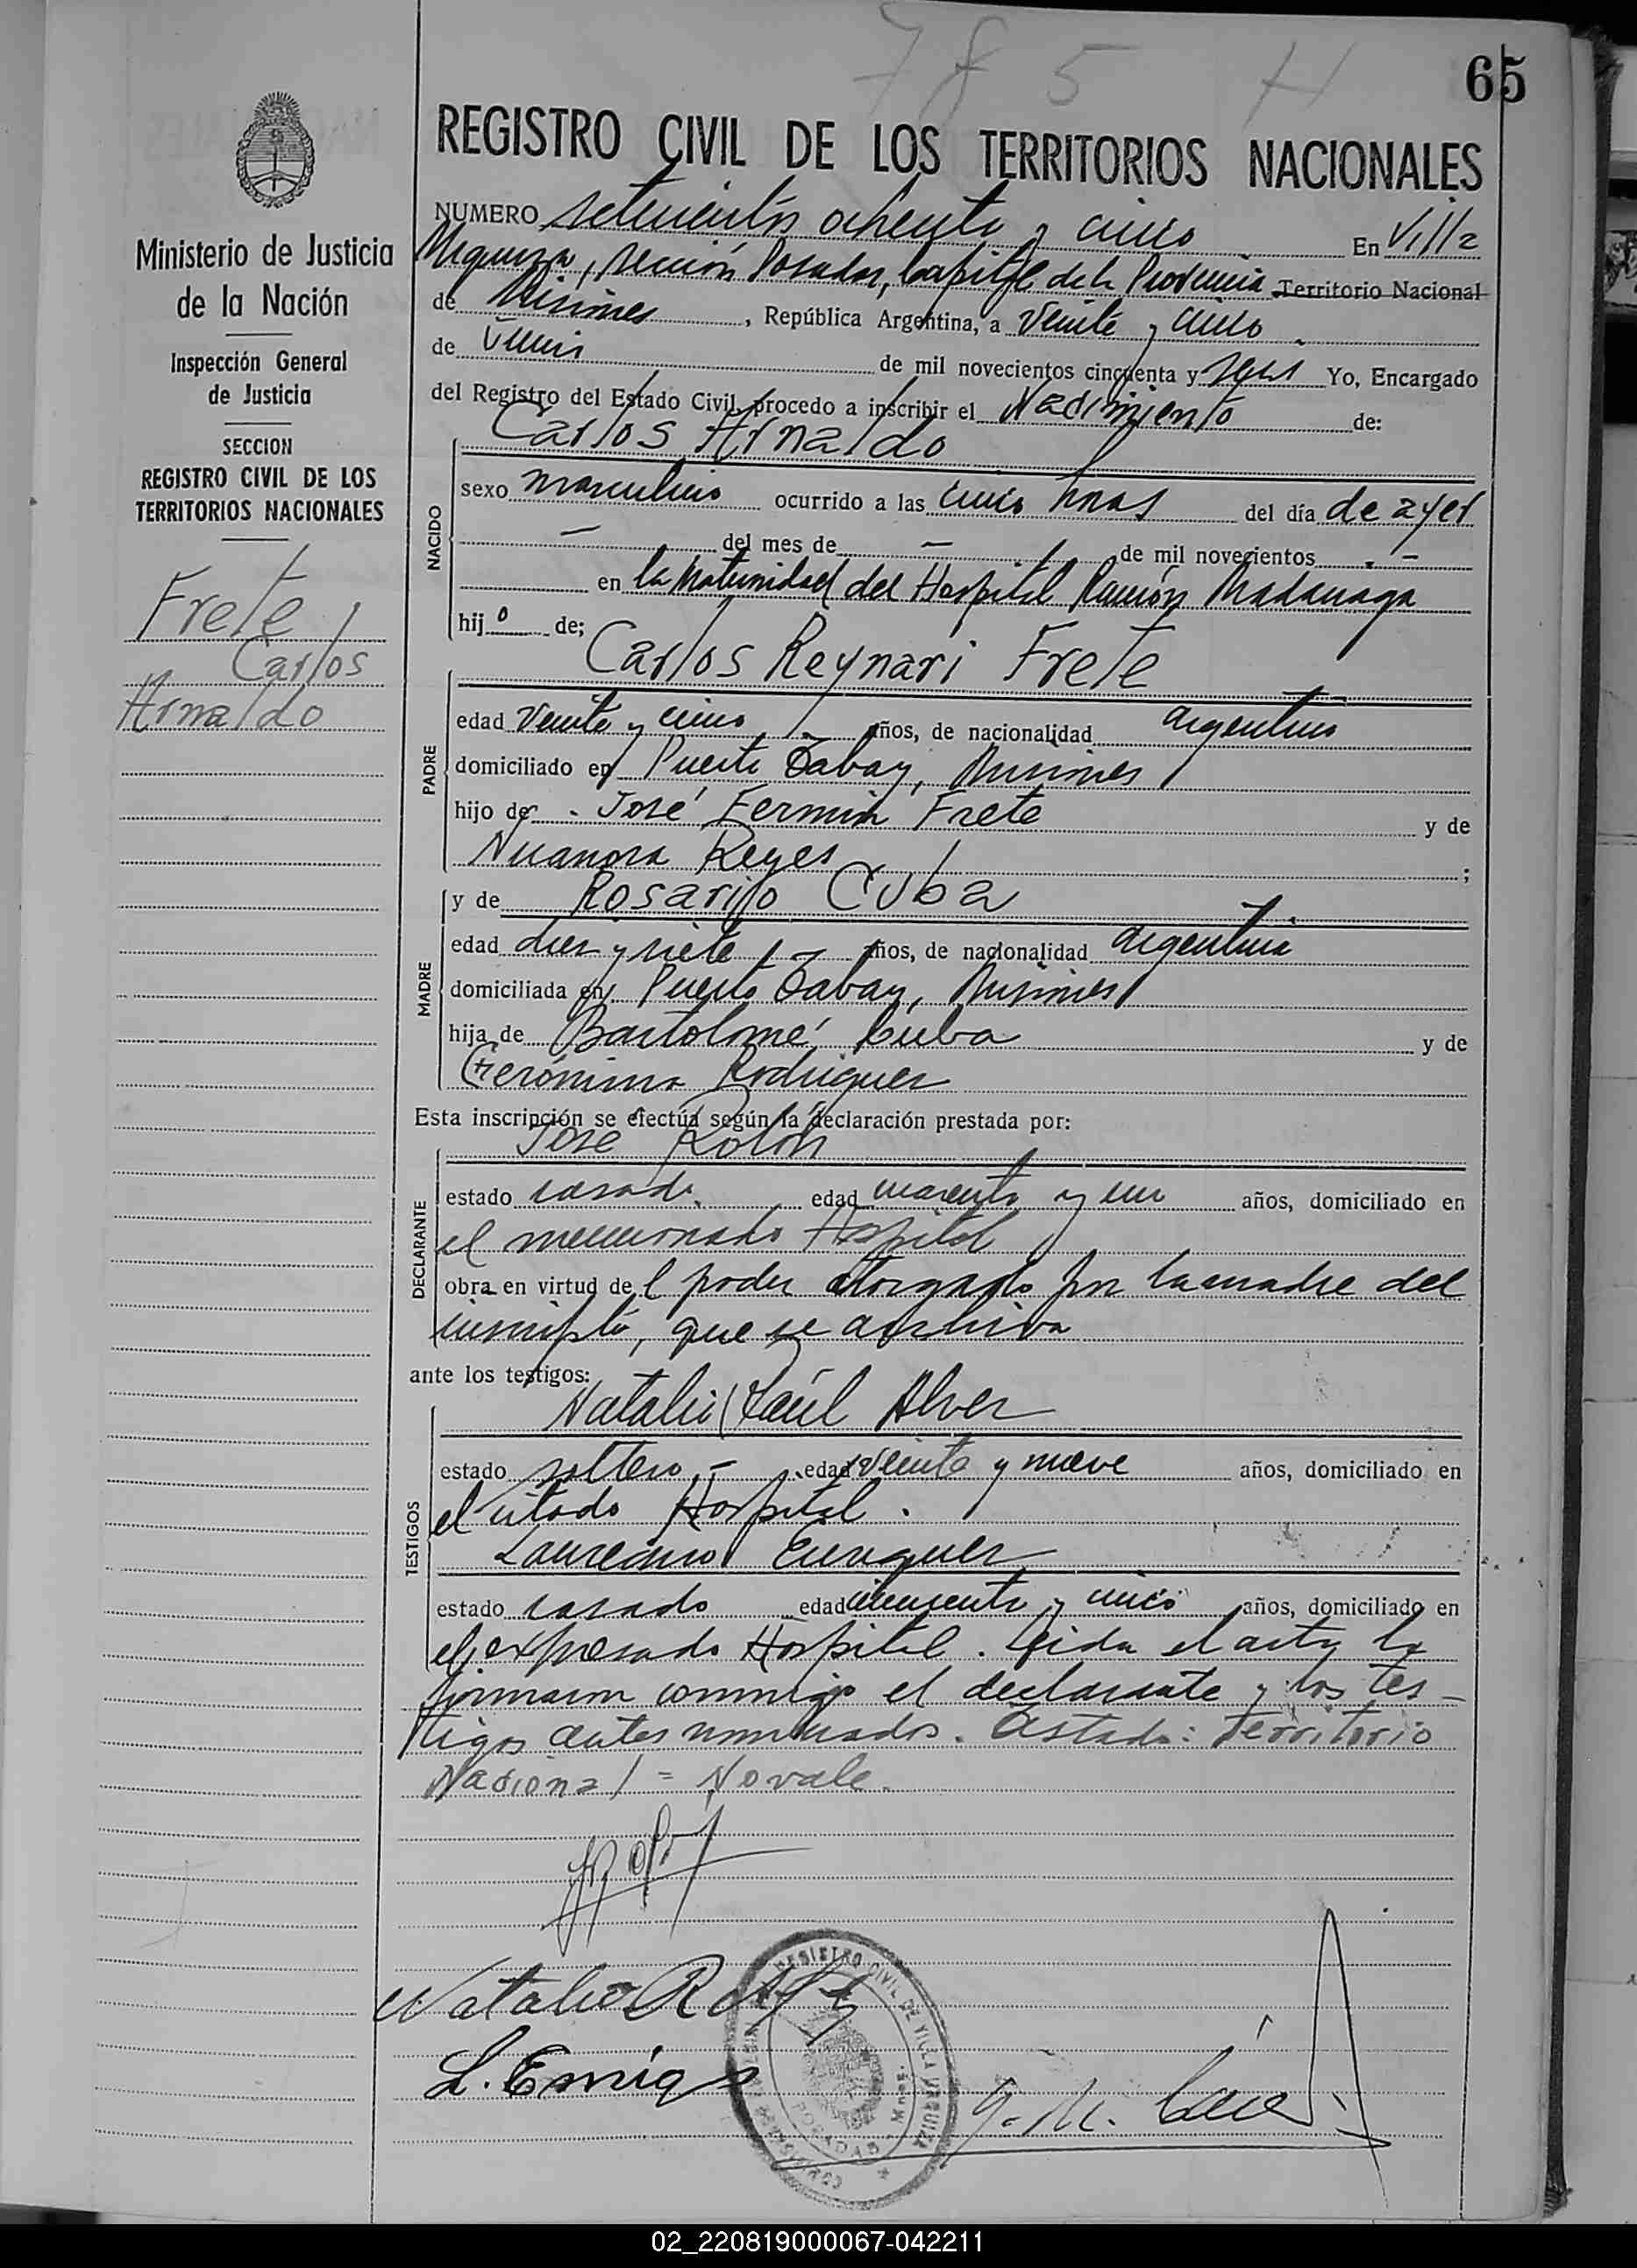 785 H
65
REGISTRO CIVIL DE LOS TERRITORIOS NACIONALES
Ministerio de Justicia
de la Nación
Inspección General
de Justicia
SECCION
REGISTRO CIVIL DE LOS
TERRITORIOS NACIONALES
Frete,
Carlos
Arnaldo
NUMERO setecientos ochenta y cinco En Villa
Urquiza, sección Posadas, Capital de la Provincia Territorio Nacional
de Misiones, República Argentina, a veinte y cinco
de de mil novecientos cincuenta y seis Yo, Encargado
del Registro del Estado Civil, procedo a inscribir el Nacimiento de:
Carlos Arnaldo
NACIDO
sexo masculino ocurrido a las cinco horas del día de ayer
— del mes de — de mil novecientos —
en la Maternidad del Hospital Ramón Madariaga
hijo de;
Carlos Reynari Frete
PADRE
edad veinte y cinco años, de nacionalidad argentino
domiciliado en Puerto Tabay, Misiones
hijo de José Fermin Frete y de
Nicanora Reyes ;
y de Rosario Cuba
MADRE
edad diez y siete años, de nacionalidad argentina
domiciliada en Puerto Tabay, Misiones
hija de Bartolomé Cuba y de
Gerónima Rodriguez
Esta inscripción se efectúa según la declaración prestada por:
José Rolón
DECLARANTE
estado casado edad cuarenta y un años, domiciliado en
el mencionado Hospital
obra en virtud del poder otorgado por la madre del
inscripto, que se archiva
ante los testigos:
Natalio Raúl Alvez
TESTIGOS
estado soltero edad veinte y nueve años, domiciliado en
el citado Hospital.
Laureano Enriquez
estado casado edad cincuenta y cinco años, domiciliado en
el expresado Hospital. Leida el acta, la
firmaron conmigo el declarante y los tes-
tigos antes nombrados. Testado: Territorio
Nacional = No vale.
Natalio R
L. Enriq
REGISTRO CIVIL DE VILLA URQUIZA
POSADAS
02_220819000067-042211